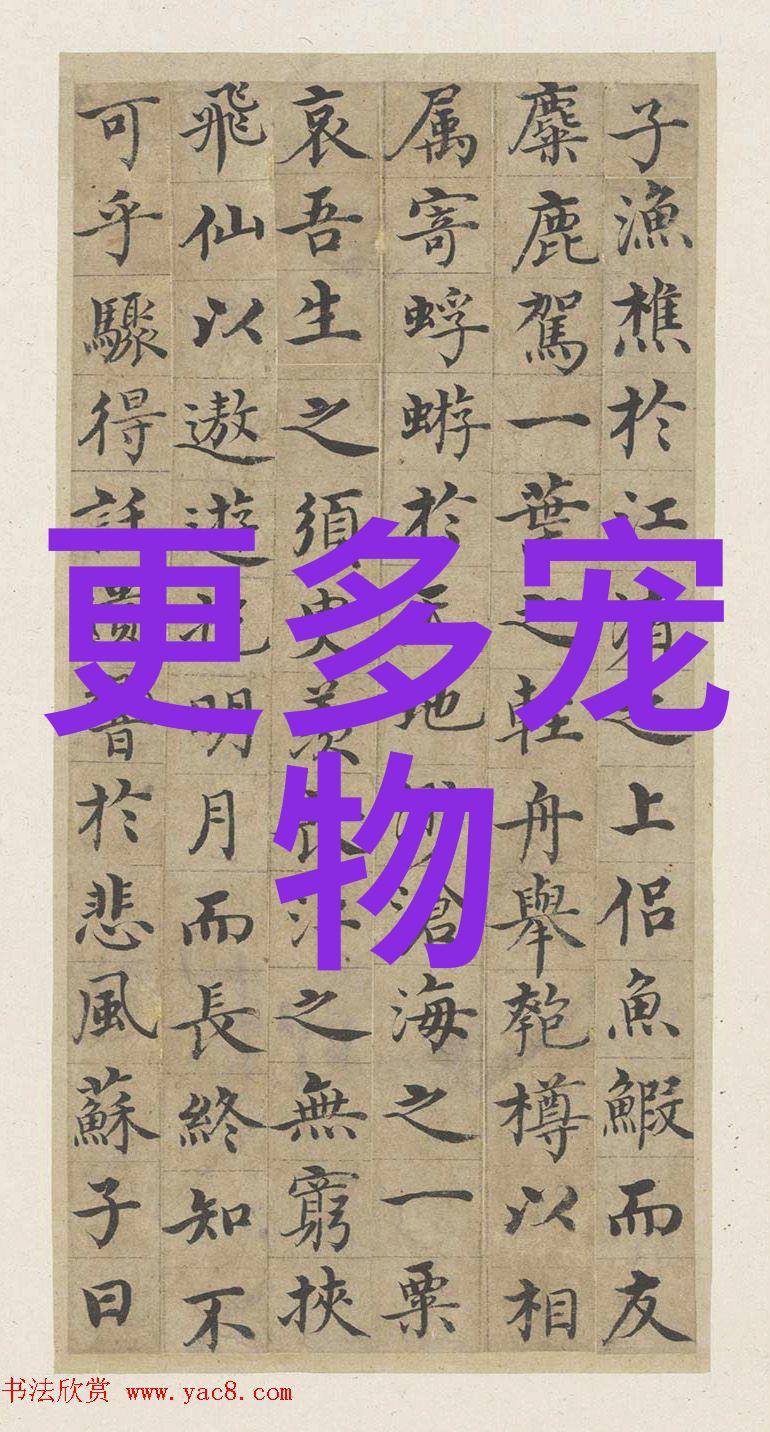 子漁樵於江渚之上侶魚鰕而友
麋鹿駕一葉之輕舟舉匏樽以相
属寄蜉蝣於天地渺滄海之一粟
哀吾生之須臾羨長江之無窮挾
飛仙以遨遊抱明月而長終知不
可乎驟得託遺響於悲風蘇子曰
更多宠
物
书法欣赏 www.yac8.com